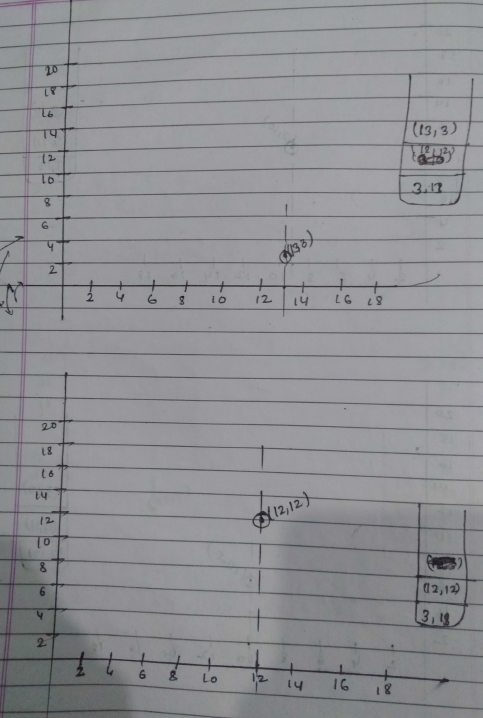 20
18
16
14
12
10
8
6
4
2
2 4 6 8 10 12 14 16 18
(13,3)
(13,3)
(12,12)
3,18
20
18
16
14
12
10
8
6
4
2
2 4 6 8 10 12 14 16 18
(12,12)
(12,12)
3,18